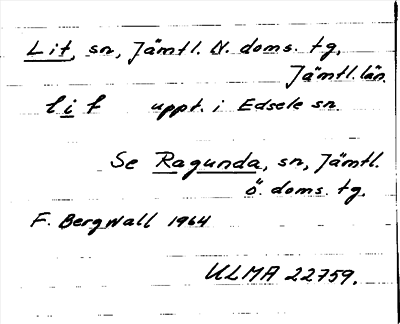 Lit, sn, Jämtl. N. doms. tg,
Jämtl. län.
lit uppt. i Edsele sn.
Se Ragunda, sn, Jämtl.
ö. doms. tg.
F. Bergwall 1964
ULMA 22759.